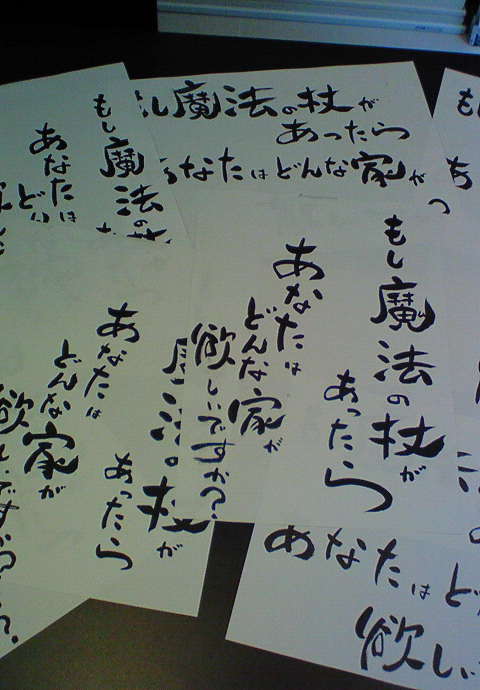 もし魔法の
あなたは
どん
もし魔法の杖が
あったら
あなたはどんな家が
もし魔法の杖が
あったら
あなたは
どんな家が
欲しいですか?
杖が
あったら
あなたは
どんな家が
欲しいですか?
あなたはど
欲しい